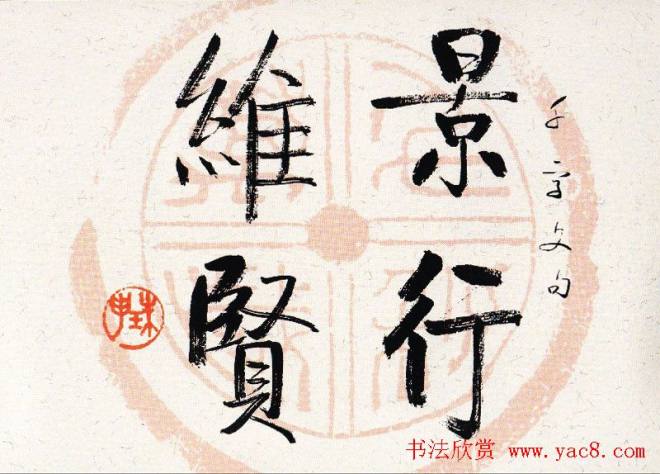 千字文句
景行
維賢
书法欣赏 www.yac8.com